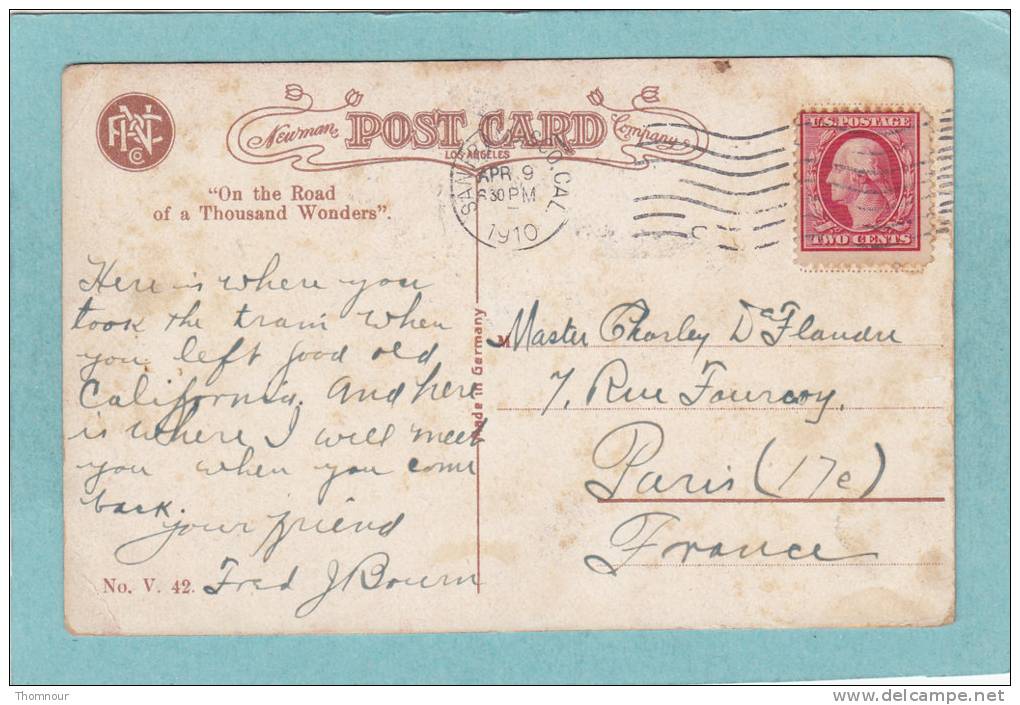 Newman POST CARD Company
LOS ANGELES
"On the Road
of a Thousand Wonders".
CO. CAL.
APR 9
6 30 PM
1910
U.S. POSTAGE
TWO CENTS
Here is where you
took the train when
you left good old
California. And here
is where I will meet
you when you come
back.
your friend
Fred J Bourn
No. V. 42.
Made in Germany
M
Master Charley De Flandre
7, Rue Fourcoy,
Paris (17e)
France
Thomnour
delcampe.net